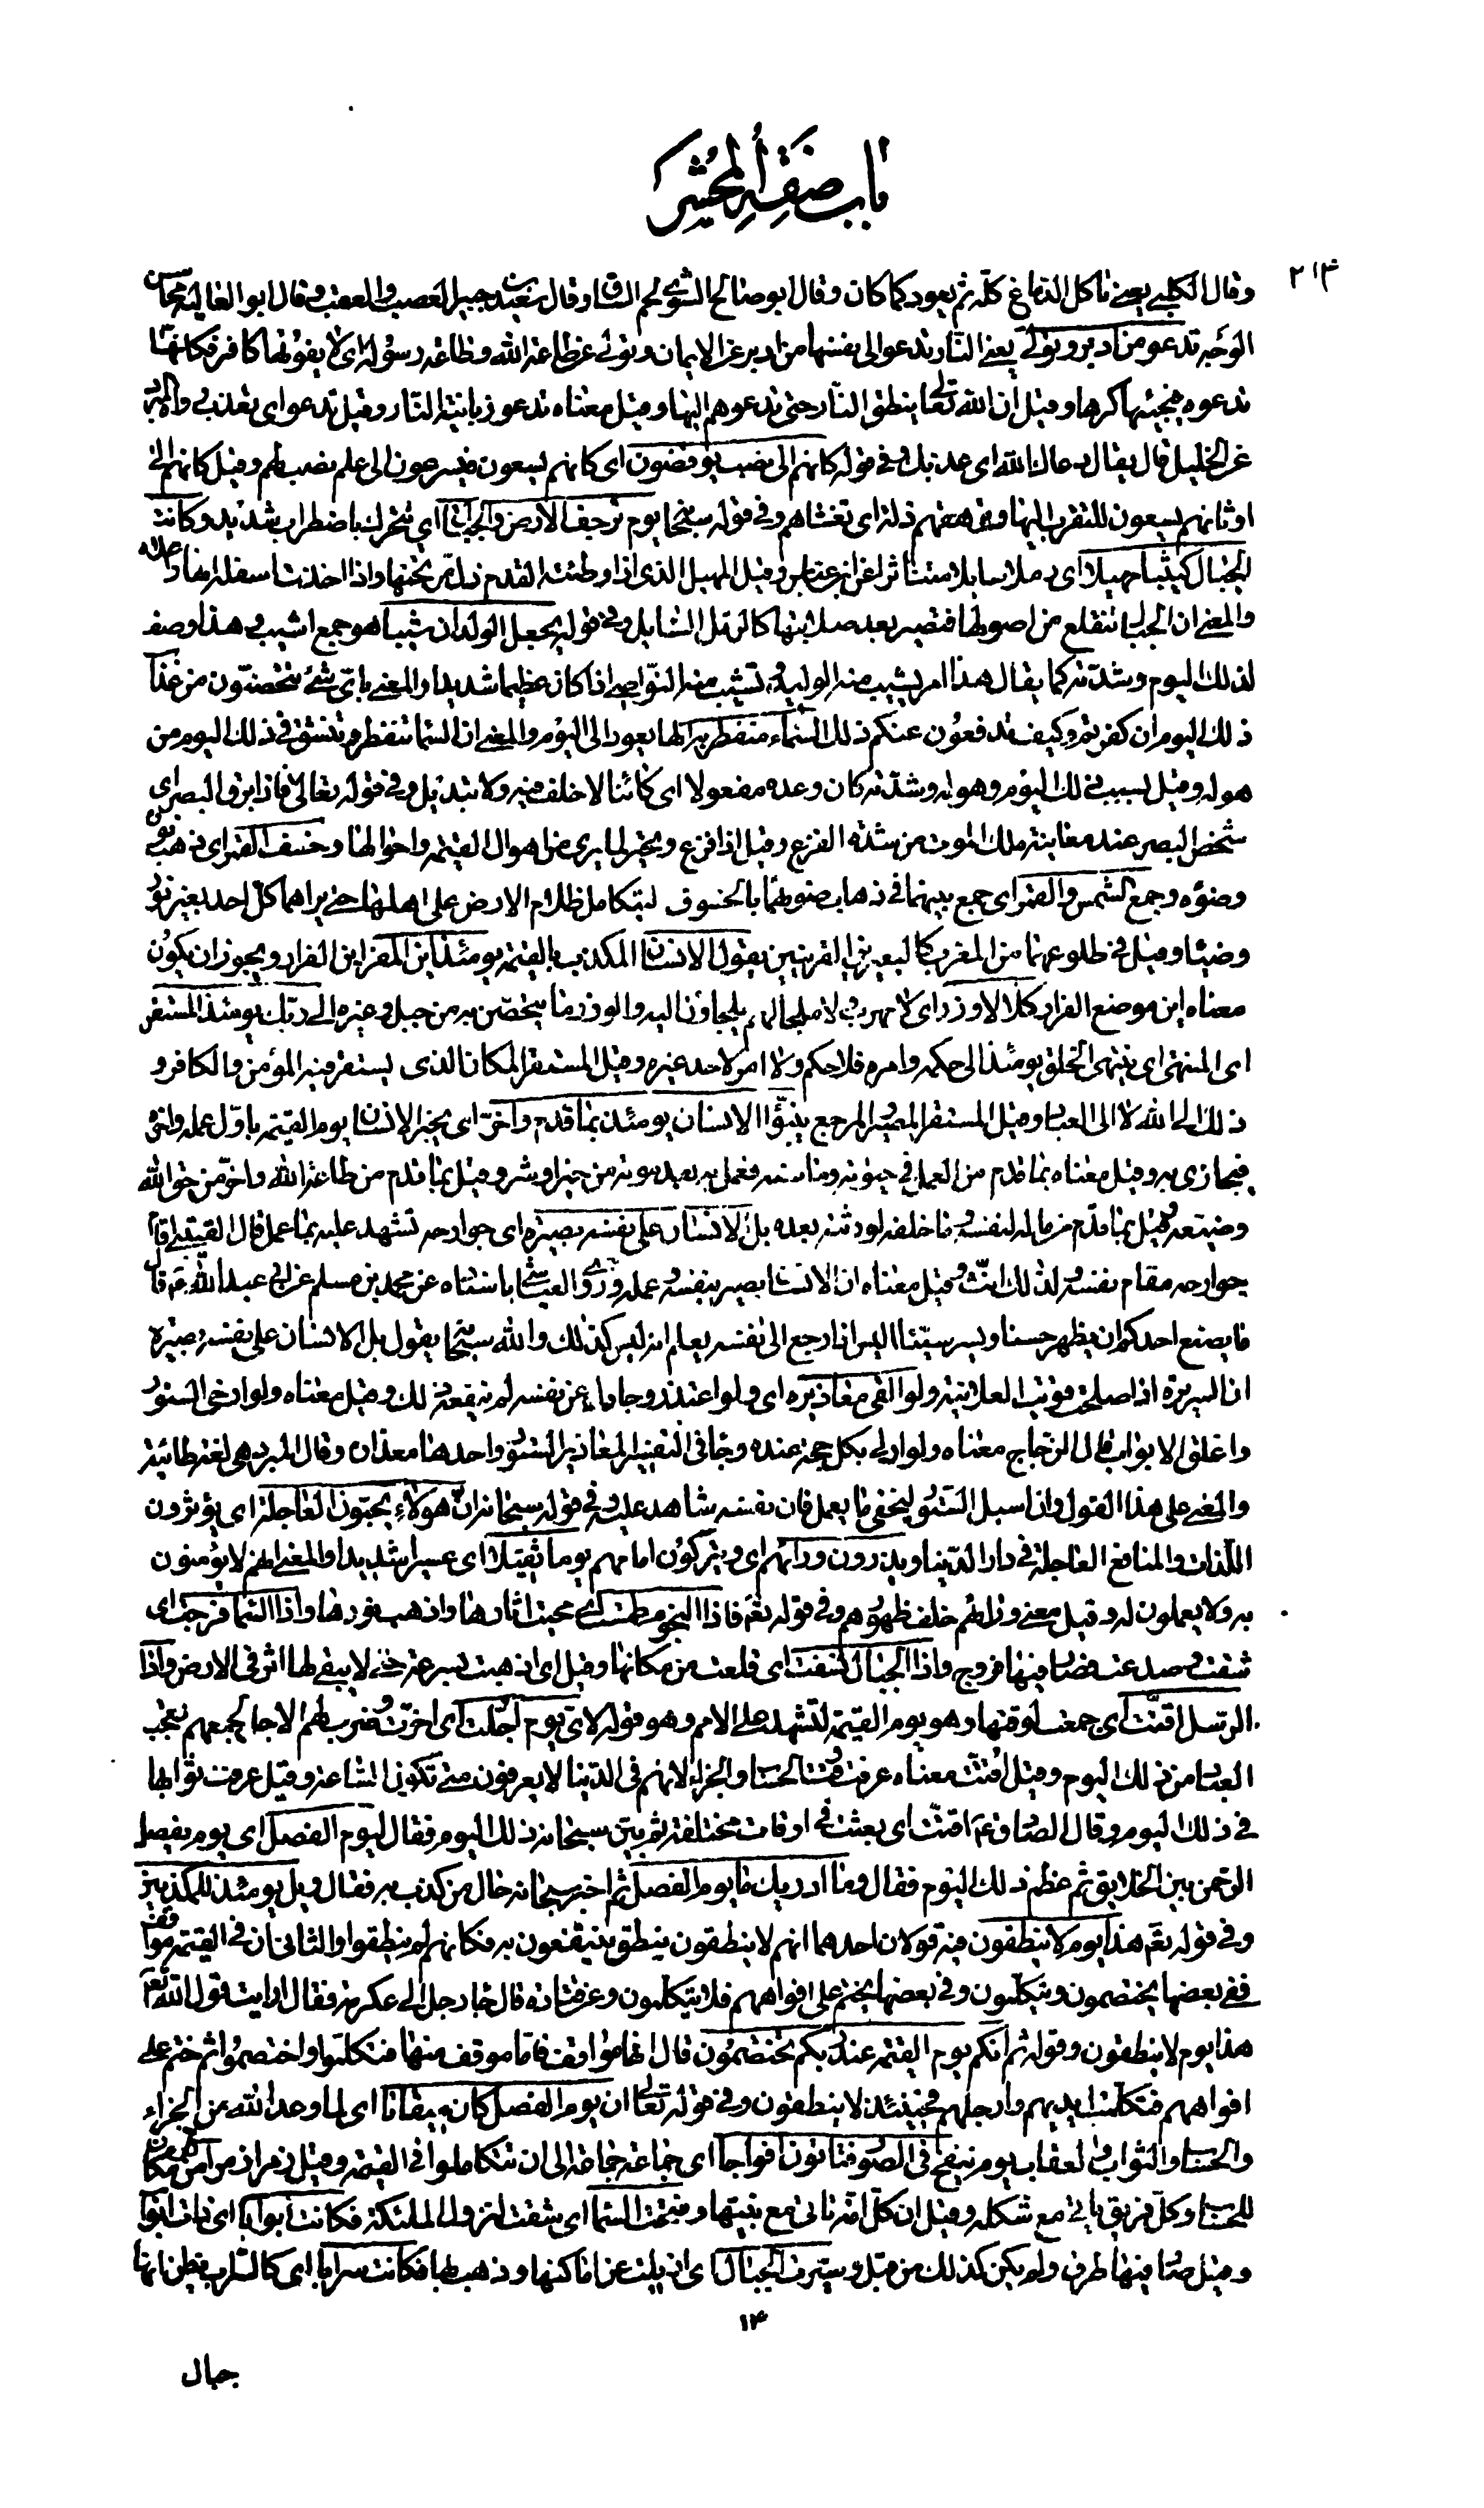 باب صفة المحشر
٢١٣
وقال الكلبي يعني تأكل الدماغ كلّه ثم يعود كما كان وقال ابو صالح الشوى لحم الساق وقال سعيد بن جبير العصب والعقب وقال ابو العالية محاسن
الوجه تدعو من ادبر وتولى يعني النار تدعو الى نفسها من ادبر عن الايمان وتولى عن طاعة الله وطاعة رسوله اى لا يفوتها كافر فكانها
تدعوه فيجيبها كرها وقيل ان الله تعالى ينطق النار حتى تدعوهم اليها وقيل معناه تدعو زبانية النار وقيل تدعو اى تعذب والمبرد
عن الخليل قال يقال دعاك الله اى عذبك وفي قوله كانهم الى نصب يوفضون اى كانهم يسعون فيسرعون الى علم نصب لهم وقيل كانهم الى
اوثانهم يسعون للتقرب اليها وترهقهم ذلة اى تغشاهم وفي قوله سبحانه يوم ترجف الارض والجبال اى تتحرك باضطراب شديد وكانت
الجبال كثيبا مهيلا اى رملا سايلا متناثرا عن ابن عباس وقيل المهيل الذى اذا وطئته القدم زل من تحتها واذا اخذت اسفله انهار اعلاه
والمعنى ان الجبال تنقلع من اصولها فتصير بعد صلابتها كالرمل السايل وفي قوله يجعل الولدان شيبا هو جمع اشيب وهذا وصف
لذلك اليوم وشدته كما يقال هذا امر يشيب منه الوليد وتشيب منه النواصي اذا كان عظيما شديدا والمعنى باىّ شئ تتحصنون من عذاب
ذلك اليوم ان كفرتم وكيف تدفعون عنكم ذلك السماء منفطر به الهاء يعود الى اليوم والمعنى ان السماء تنفطر وتنشق في ذلك اليوم من
هوله وقيل بسبب ذلك اليوم وهوله وشدته كان وعده مفعولا اى كائنا لا خلف فيه ولا تبديل وفي قوله تعالى فاذا برق البصر اى
شخص البصر عند معاينة ملك الموت من شدة الفزع وقيل اذا فزع وتحير لما يرى من اهوال القيمة واحوالها وخسف القمر اى ذهب نوره
وضوؤه وجمع الشمس والقمر اى جمع بينهما في ذهاب ضوئهما بالخسوف ليتكامل ظلام الارض على اهلها حتى يراهما كل احد بغير نور
وضياء وقيل في طلوعهما من المغرب كالبعيرين القرينين يقول الانسان المكذب بالقيمة يومئذ اين المفر اين الفرار ويجوز ان يكون
معناه اين موضع الفرار كلا لا وزر اى لا مهرب ولا ملجأ لهم يلجاؤن اليه والوزر ما يتحصّن به من جبل وغيره الى ربك يومئذ المستقر
اى المنتهى اى ينتهى الخلق يومئذ الى حكمه وامره فلا حكم ولا امر لاحد غيره وقيل المستقر المكان الذى يستقر فيه المؤمن والكافر و
ذلك الى الله لا الى العباد وقيل المستقر المصير المرجع ينبّؤا الانسان يومئذ بما قدم واخّر اى يخبر الانسان يوم القيمة باوّل عمله واخره
فيجازى به وقيل معناه بما قدم من العمل في حيوته وما سنه فعمل به بعد موته من خير او شر وقيل بما قدم من طاعة الله واخّر من حق الله
وضيّعه وقيل بما قدّم من ماله لنفسه وما خلفه لورثته بعده بل الانسان على نفسه بصيرة اى جوارحه تشهد عليه بما عمل قال القتيبي اقام
جوارحه مقام نفسه لذلك انّث وقيل معناه ان الانسان بصير بنفسه وعمله وروى العياشي باسناده عن محمد بن مسلم عن ابي عبد الله ع قال
ما يصنع احدكم ان يظهر حسنا ويسر سيّئا اليس اذا رجع الى نفسه يعلم انه ليس كذلك والله سبحانه يقول بل الانسان على نفسه بصيرة
ان السريرة اذا صلحت قويت العلانية ولو القى معاذيره اى ولو اعتذر وجادل عن نفسه لم ينفعه ذلك وقيل معناه ولو ارخى الستور
واغلق الابواب قال الزجاج معناه ولو ادلى بكل حجة عنده وجاء في التفسير المعاذير الستور واحدها معذار وقال المبرد هي لغة طائية
والمعنى على هذا القول وان اسبل الستور ليخفى ما يعمل فان نفسه شاهد عليه وفي قوله سبحانه انّ هؤلاء يحبّون العاجلة اى يؤثرون
اللذات والمنافع العاجلة في دار الدنيا ويذرون ورائهم اى ويتركون امامهم يوما ثقيلا اى عسيرا شديدا والمعنى انهم لا يؤمنون
به ولا يعملون له وقيل معنى ورائهم خلف ظهورهم وفي قوله تع فاذا النجوم طمست اى محيت اثارها واذهب نورها واذا السماء فرجت اى
شقت وصدعت فصار فيها فروج واذا الجبال نسفت اى قلعت من مكانها وقيل اى اذهبت بسرعة حتى لا يبقى لها اثر في الارض واذا
الرسل اقتت اى جمعت لوقتها وهو يوم القيمة لتشهد على الامم وهو قوله لاى يوم اجّلت اى اخرت وضرب لهم الاجل لجمعهم تعجب
العباد من ذلك اليوم وقيل اقتت معناه عرفت وقت الحساب والجزاء لانهم في الدنيا لا يعرفون متى تكون الساعة وقيل عرفت ثوابها
في ذلك اليوم وقال الصادق ع اقتت اى بعثت في اوقات مختلفة ثم بيّن سبحانه ذلك اليوم فقال ليوم الفصل اى يوم يفصل
الرحمن بين الخلايق ثم عظم ذلك اليوم فقال وما ادريك ما يوم الفصل ثم اخبر سبحانه حال من كذب به فقال ويل يومئذ للمكذبين
وفي قوله تع هذا يوم لا ينطقون فيه قولان احدهما انهم لا ينطقون بنطق ينتفعون به فكانهم لم ينطقوا والثاني ان في القيمة مواقف
ففى بعضها يختصمون ويتكلمون وفي بعضها يختم على افواههم فلا يتكلمون وعن قتادة قال جاء رجل الى عكرمة فقال ارايت قول الله تع
هذا يوم لا ينطقون وقوله ثم انكم يوم القيمة عند ربكم تختصمون قال انها مواقف فاما موقف منها فتكلموا واختصموا ثم ختم على
افواههم فتكلمت ايديهم وارجلهم فحينئذ لا ينطقون وفي قوله تعالى ان يوم الفصل كان ميقاتا اى لما وعد الله من الجزاء
والحساب والثواب والعقاب يوم ينفخ في الصور فتاتون افواجا اى جماعة جماعة الى ان تتكاملوا في القيمة وقيل زمرا زمرا من كل مكان
للحساب وكل فريق ياتى مع شكله وقيل ان كل امة تاتى مع نبيها وفتحت السماء اى شقت لنزول الملئكة فكانت ابوابا اى ذات ابواب
وقيل صار فيها طرق ولم يكن كذلك من قبل وسيّرت الجبال اى ازيلت عن اماكنها وذهب بها فكانت سرابا اى كالسراب يظن انها
١٣
جبال